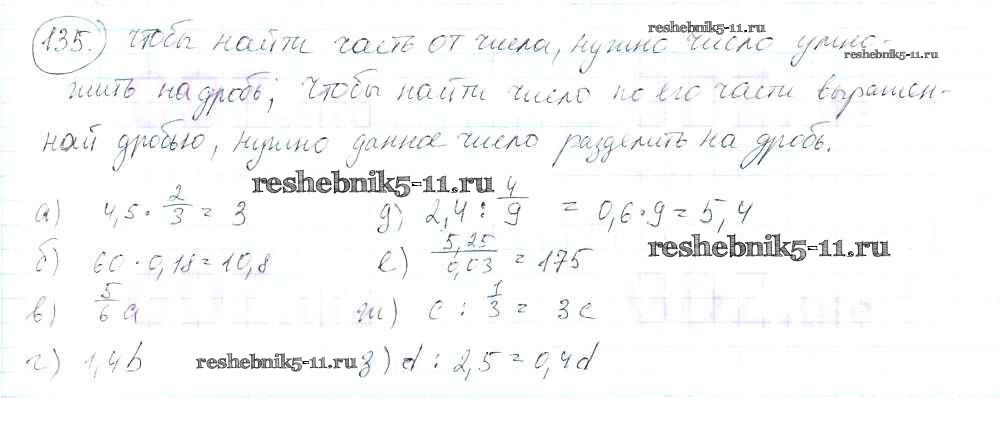 reshebnik5-11.ru
135. Чтобы найти часть от числа, нужно число умно-
reshebnik5-11.ru
жить на дробь; Чтобы найти число по его части выражен-
ной дробью, нужно данное число разделить на дробь.
reshebnik5-11.ru
а) 4,5 · 2/3 = 3 д) 2,4 : 4/9 = 0,6 · 9 = 5,4
reshebnik5-11.ru
б) 60 · 0,18 = 10,8 е) 5,25/0,03 = 175
в) 5/6 a ж) c : 1/3 = 3c
г) 1,4b reshebnik5-11.ru з) d : 2,5 = 0,4d